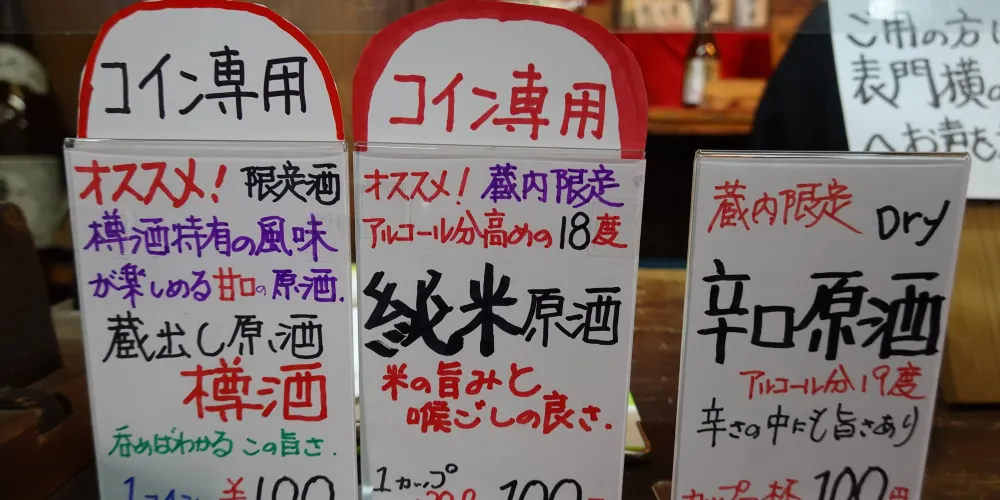 コイン専用
オススメ! 限定酒
樽酒特有の風味
が楽しめる甘口の原酒.
蔵出し原酒
樽酒
呑めばわかる この旨さ.
1コイン ¥100
コイン専用
オススメ! 蔵内限定
アルコール分高めの18度
純米原酒
米の旨みと
喉ごしの良さ.
1カップ 100
蔵内限定 Dry
辛口原酒
アルコール分19度
辛さの中にも旨さあり
カップ一杯 100円
ご用の方
表門横の
へお